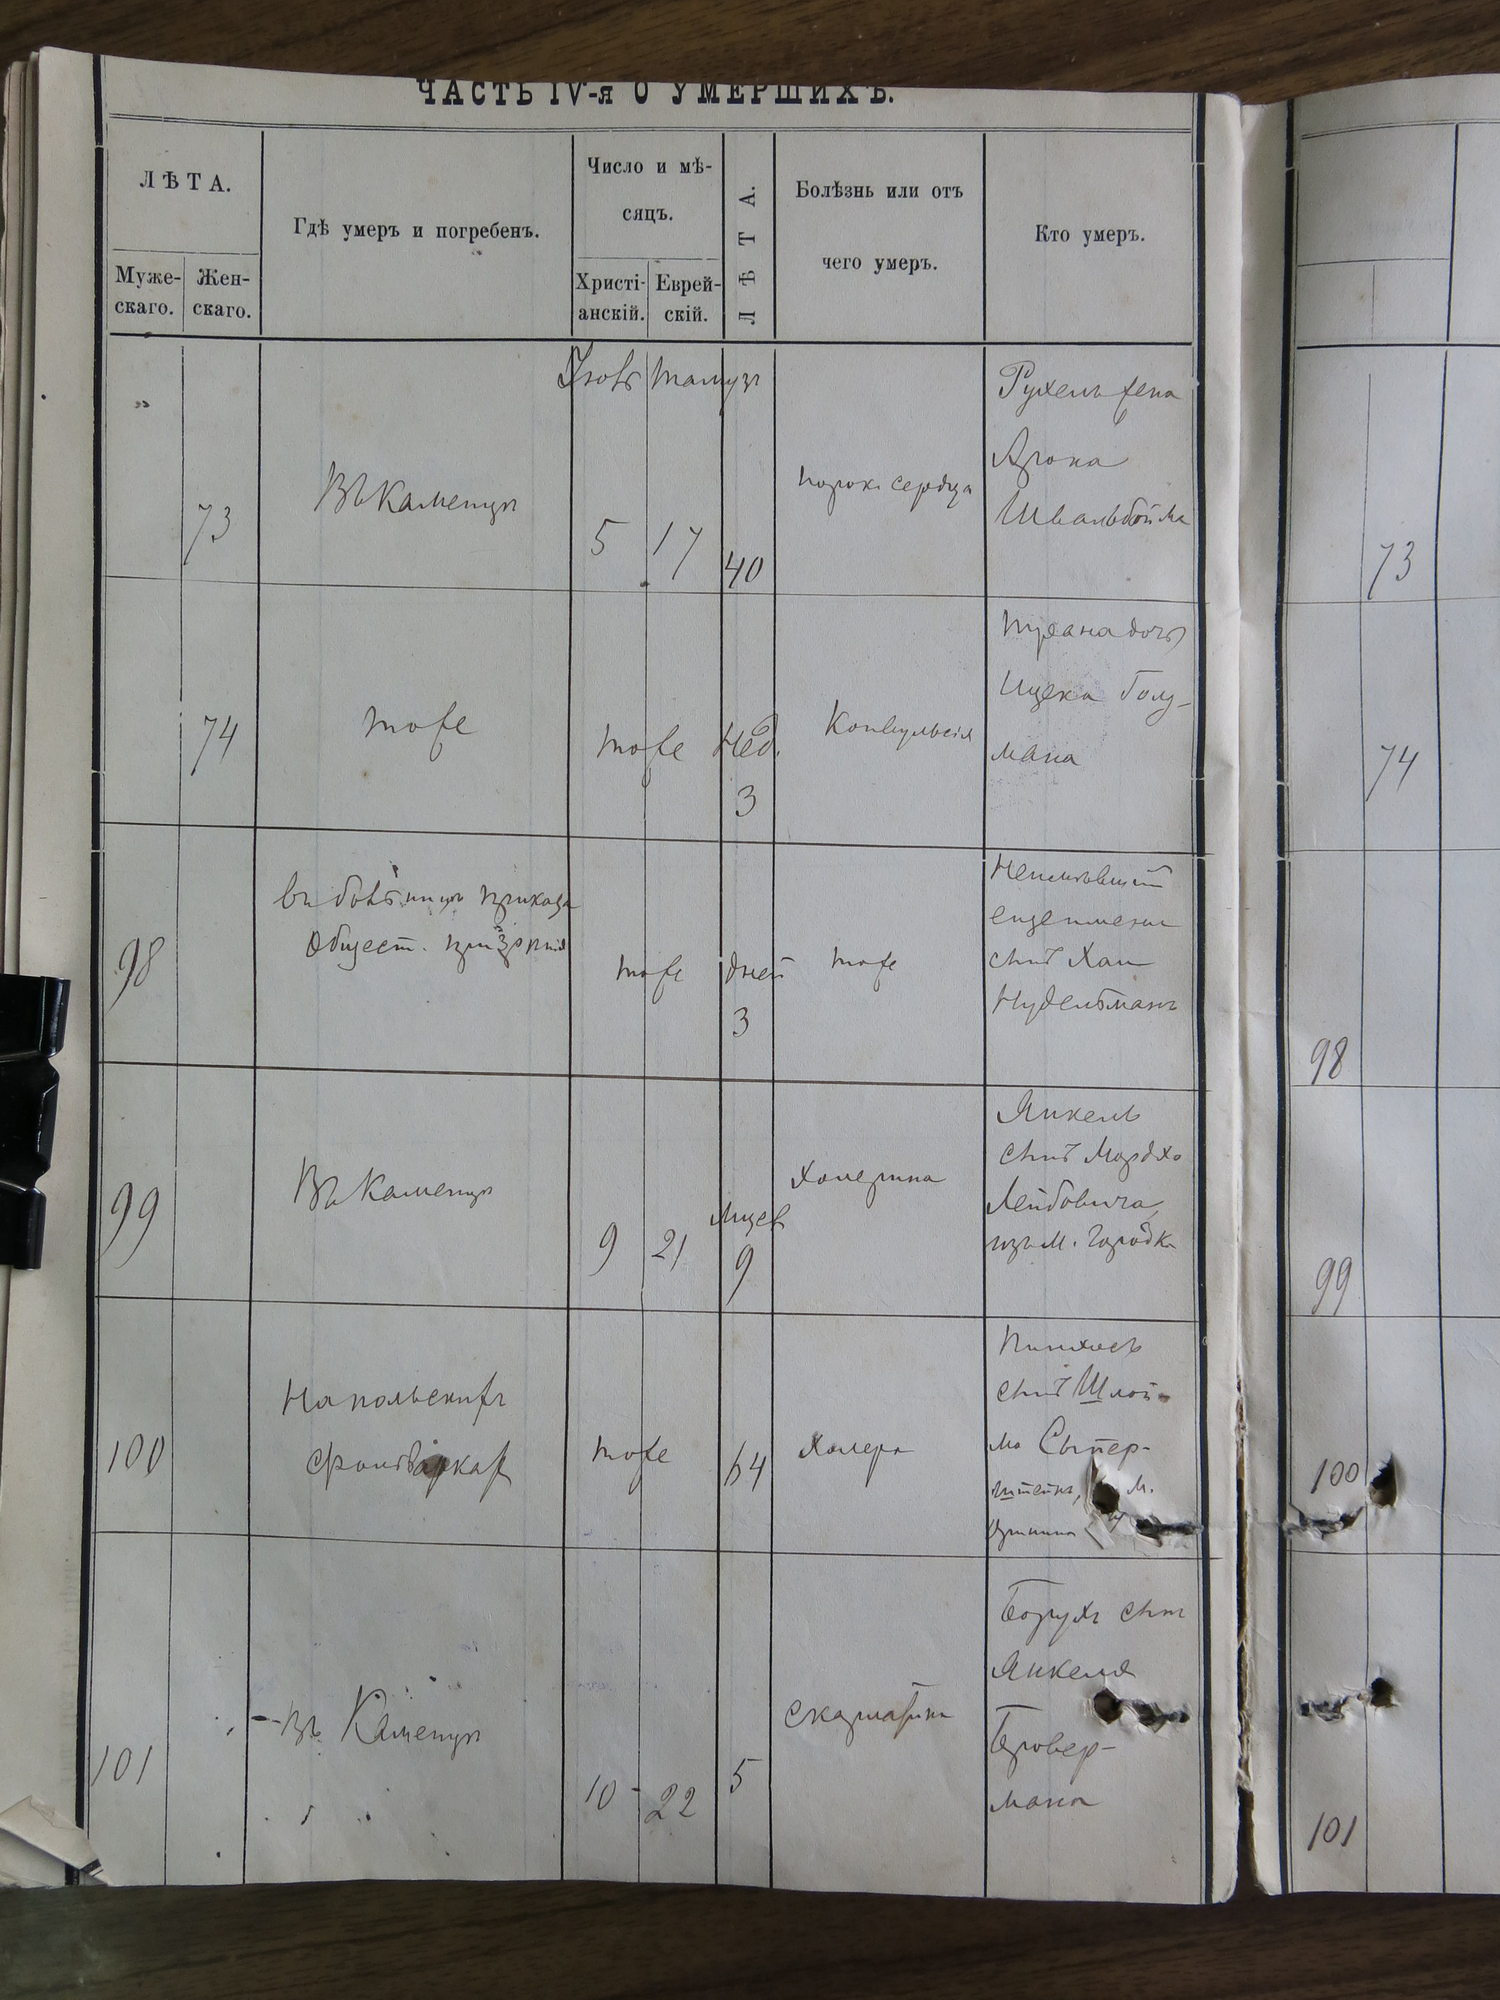 ЧАСТЬ IV-я О УМЕРШИХЪ.
ЛѢТА.
Муже-
скаго.
Жен-
скаго.
Гдѣ умеръ и погребенъ.
Число и мѣ-
сяцъ.
Христі-
анскій.
Еврей-
скій.
ЛѢТА.
Болѣзнь или отъ
чего умеръ.
Кто умеръ.
„
73
Въ Каменцѣ
Тамузъ
5
17
40
порокъ сердца
Рухель жена
Арона
Швальбойма
73
74
тоже
тоже
Нед.
3
Конвульсія
дочь
Ицека Голу-
мана
74
98
въ больницѣ приказа
Общест. призрѣнія
тоже
дней
3
тоже
Неимѣвшій
еще имени
сынъ Хаи
Нудельманъ
98
99
Въ Каменцѣ
9
21
Мцев
9
Холерина
Янкель
сынъ Мордхо
Лейбовича,
изъ м. Городка
99
100
На польскихъ
фольваркахъ
тоже
64
Холера
Пинхосъ
сынъ Шлой-
мо
штейнъ,
м.
100
101
Въ Каменцѣ
10 -
22
5
скарлатина
Борухъ сынъ
Янкеля
Бровер-
мана
101